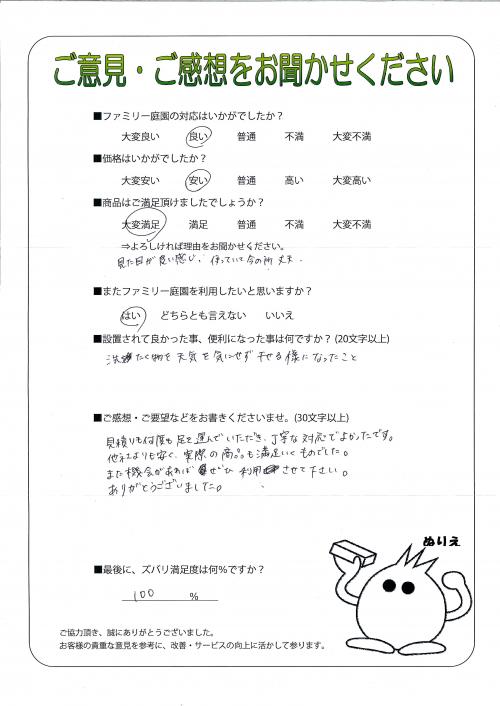 ご意見・ご感想をお聞かせください
■ファミリー庭園の対応はいかがでしたか?
大変良い 良い 普通 不満 大変不満
■価格はいかがでしたか?
大変安い 安い 普通 高い 大変高い
■商品はご満足頂けましたでしょうか?
大変満足 満足 普通 不満 大変不満
⇒よろしければ理由をお聞かせください。
見た目が良い感じ、使っていて今の所丈夫。
■またファミリー庭園を利用したいと思いますか?
はい どちらとも言えない いいえ
■設置されて良かった事、便利になった事は何ですか? (20文字以上)
洗たく物を天気を気にせず干せる様になったこと
■ご感想・ご要望などをお書きくださいませ。(30文字以上)
見積りも何度も足を運んでいただき、丁寧な対応でよかったです。
他社よりも安く、実際の商品も満足いくものでした。
また機会があれば ぜひ 利用させて下さい。
ありがとうございました。
ぬりえ
■最後に、ズバリ満足度は何%ですか?
100 %
ご協力頂き、誠にありがとうございました。
お客様の貴重な意見を参考に、改善・サービスの向上に活かして参ります。